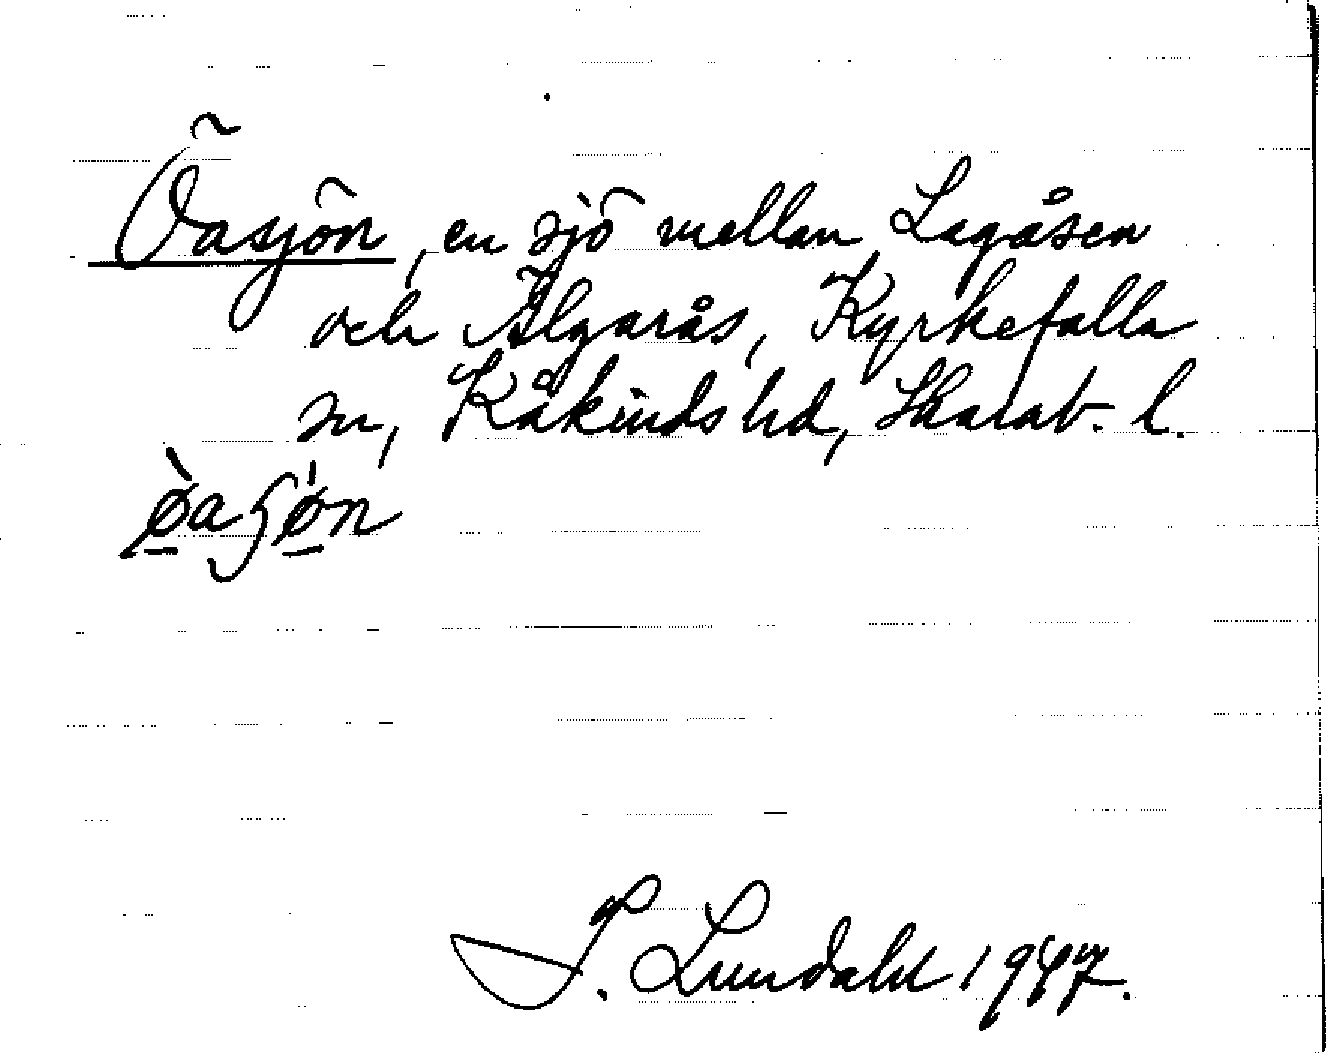 Öasjön, en sjö mellan Lagåsen
och Älgarås, Kyrkefalla
sn, Kåkinds hd, Skarab. l.
ø̀aʃǿn
I. Lundahl 1947.